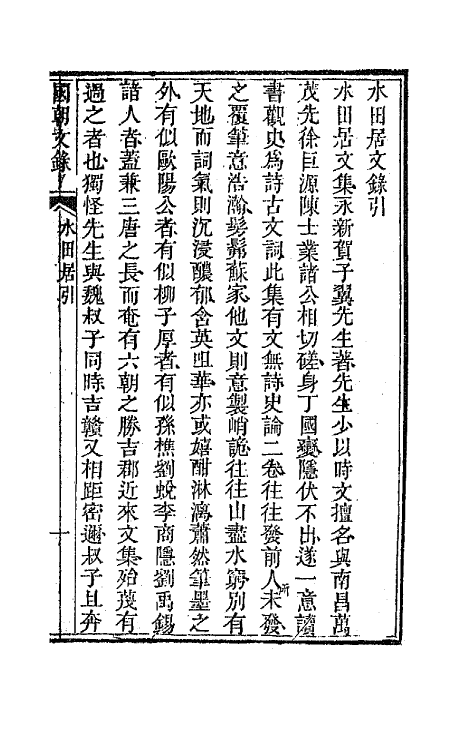 水田居文錄引
水田居文集永新賀子翼先生著先生少以時文擅名與南昌萬
茂先徐巨源陳士業諸公相切磋身丁國變隱伏不出遂一意讀
書觀史爲詩古文詞此集有文無詩史論二卷往往發前人所未發
之覆筆意浩瀚髣髴蘇家他文則意製峭詭往往山盡水窮別有
天地而詞氣則沉浸醲郁含英咀華亦或嬉酣淋漓蕭然筆墨之
外有似歐陽公者有似柳子厚者有似孫樵劉蛻李商隱劉禹錫
諸人者蓋兼三唐之長而奄有六朝之勝吉郡近來文集殆蔑有
過之者也獨怪先生與魏叔子同時吉贛又相距密邇叔子且奔
國朝文錄
水田居引
一